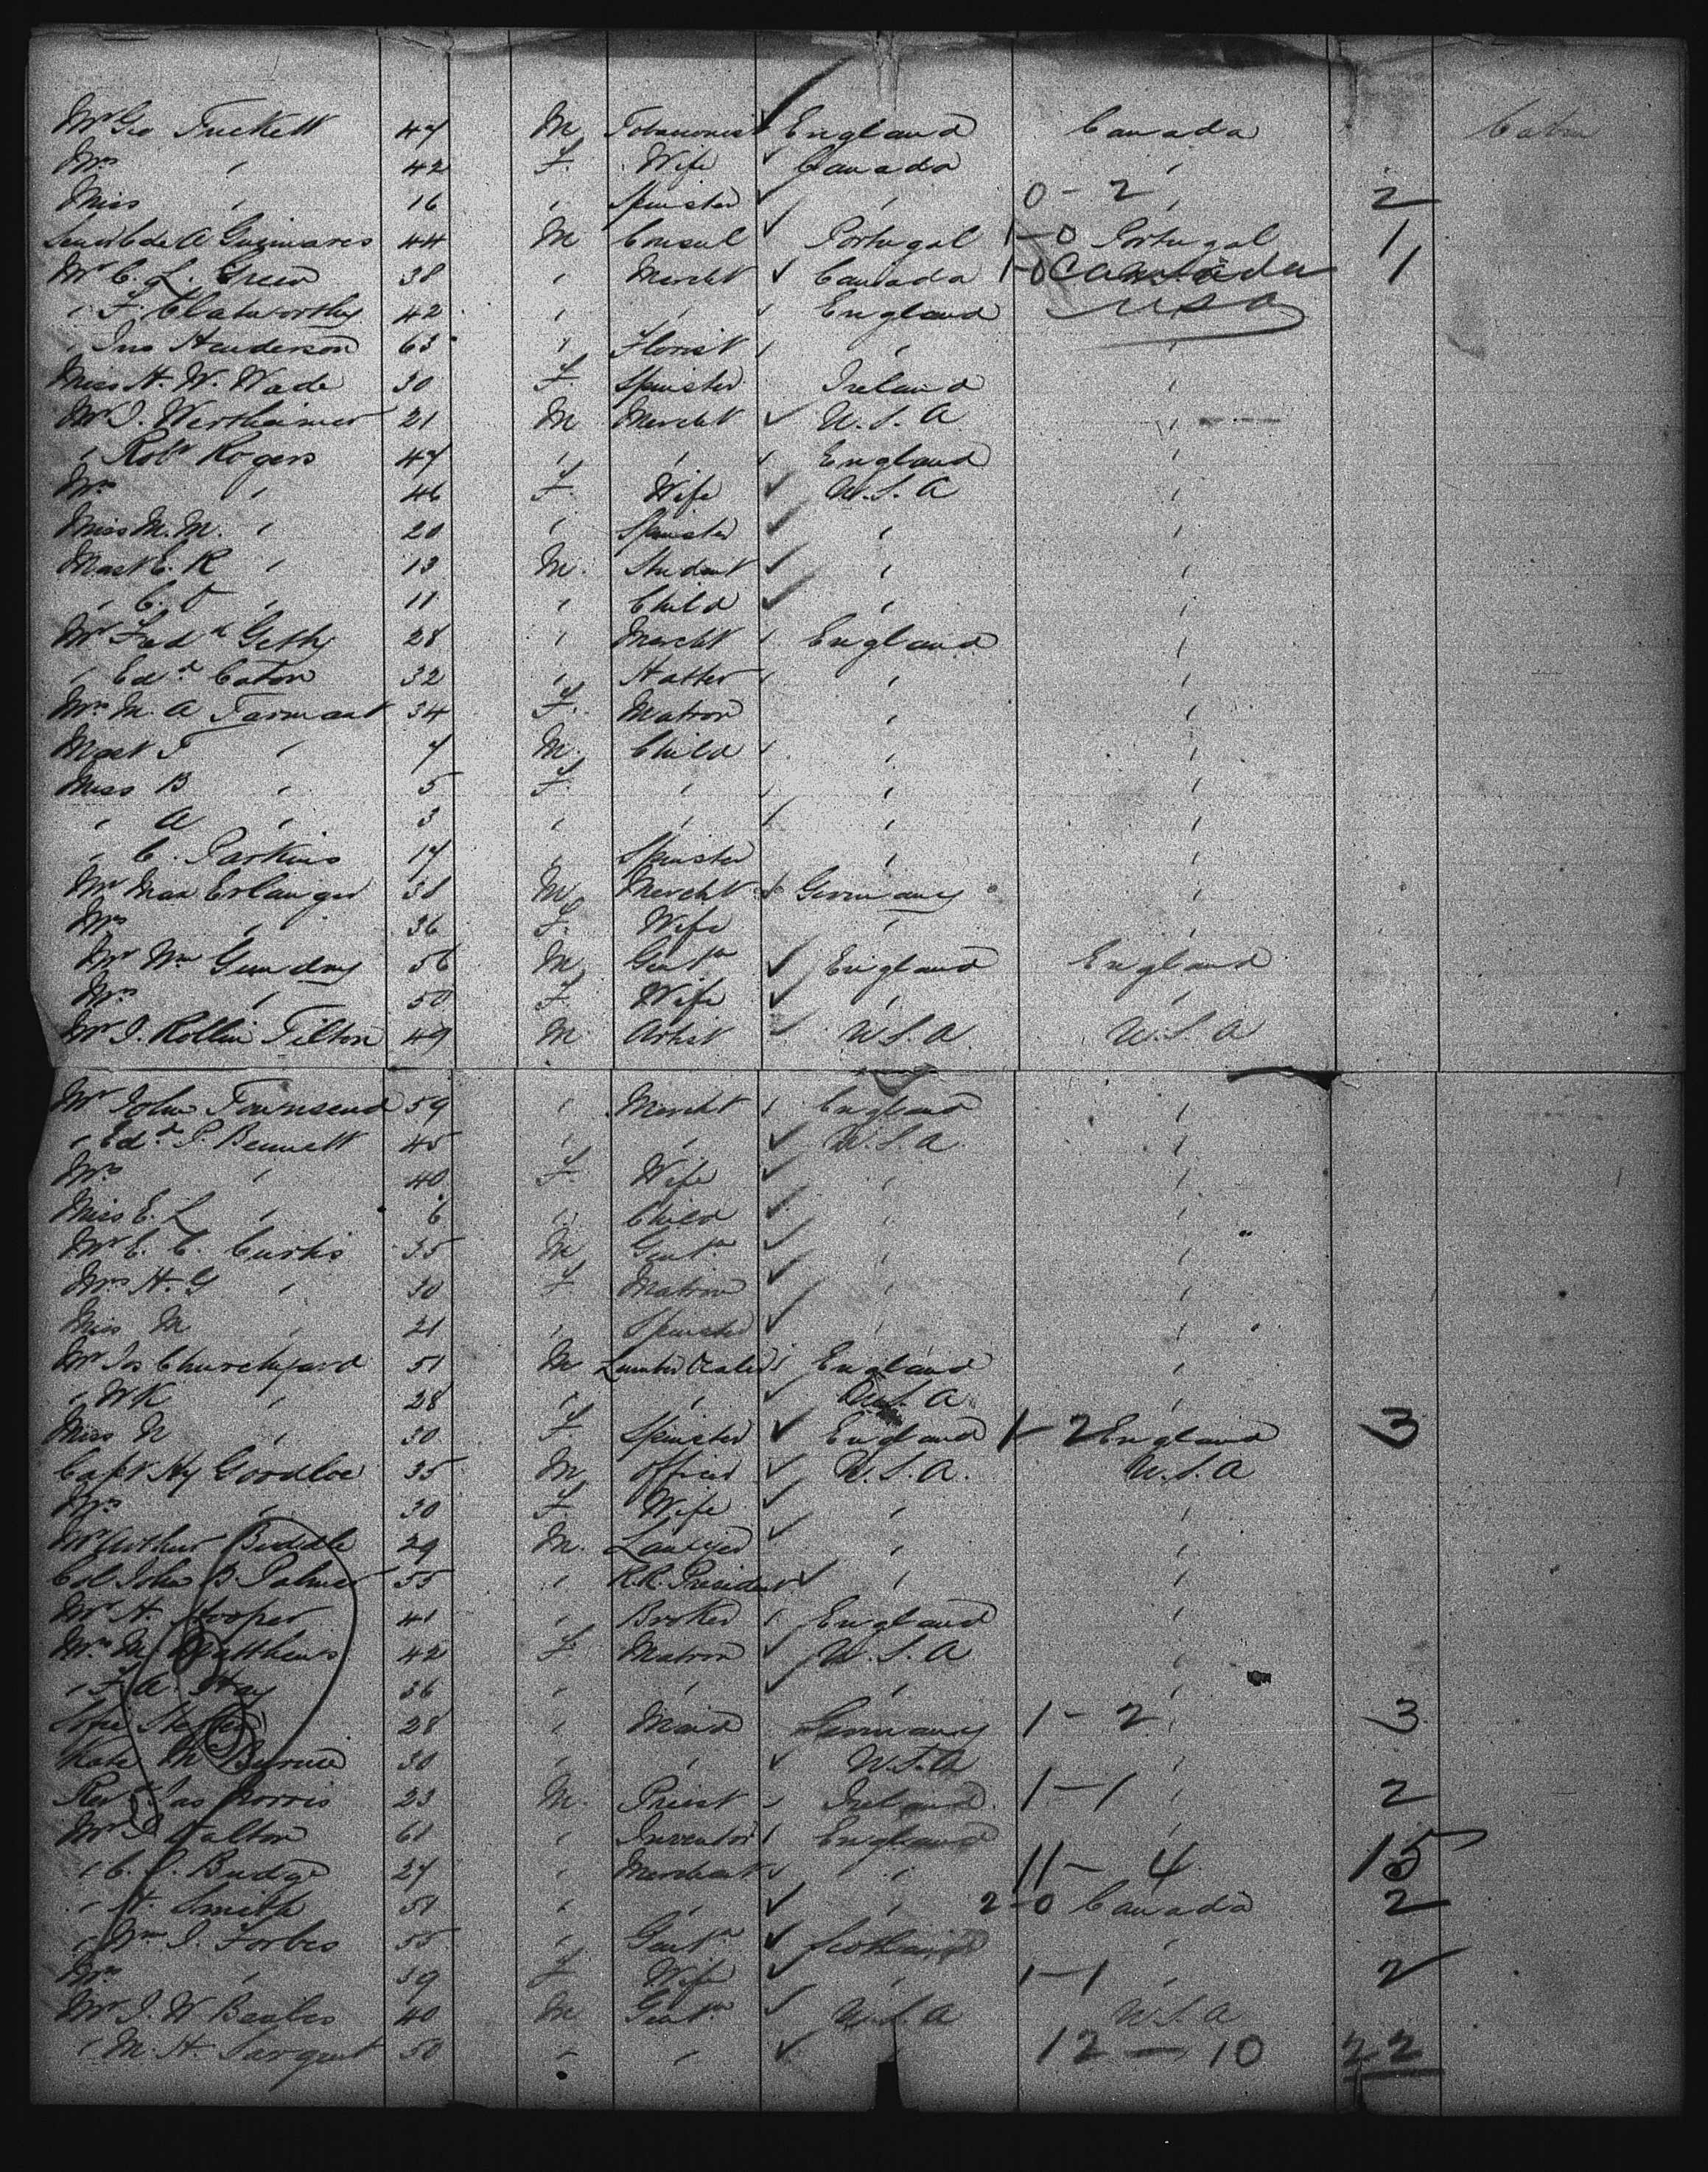 Mr Geo Tuckett 47 M Tobacconist England Canada Cabin
Mrs " 42 F. Wife Canada "
Miss " 16 " Spinster " 0-2 " 2
de A Guimares 44 M Consul Portugal 1-0 Portugal 1
Mr C. L. Green 38 " Mercht Canada 1-0 Canada 1
" F. Clatworthy 42 " " England USA
" Jno Henderson 63 " Florist " "
Miss H. W. Wade 30 F. Spinster Ireland "
Mr J. Wertheimer 21 M Mercht U.S.A "
" Robt Rogers 47 " " England "
Mrs " 46 F. Wife U.S.A "
Miss M. M. " 20 " Spinster " "
Mast E. R " 13 M. Student " "
" C. V " 11 " Child " "
Mr Fred Getty 28 " Mercht England "
" Edd Caton 32 " Hatter " "
Mrs M. A Tarmant 34 F. Matron " "
Mast T " 7 M. Child " "
Miss B " 5 F. " " "
" A " 3 " " " "
" C. Parkins 17 " Spinster " "
Mr Max Erlanger 38 M Mercht Germany "
Mrs " 36 F. Wife " "
Mr Wm Gundry 56 M Gentn England England
Mrs " 50 F. Wife " "
Mr J. Rollin Tilton 49 M Artist U.S.A U.S.A
Mr John Townsend 59 " Mercht England "
" Edd P. Bennett 45 " " U.S.A "
Mrs " 40 F. Wife " "
Miss E. L " 6 " Child " "
Mr E. C. Curtis 35 M Gentn " "
Mrs H. G " 30 F. Matron " "
Miss M " 21 " Spinster " "
Mr Jos Churchyard 51 M Lumber Dealer England "
" W K " 28 " " U.S.A "
Miss N " 30 F. Spinster England 1-2 England 3
Capt Hy Goodloe 35 M Officer U.S.A. U.S.A
Mrs " 30 F. Wife " "
Mr Arthur Biddle 29 M. Lawyer " "
Col John B. Palmer 55 " R.R. President " "
Mr H. Hooper 41 " Broker England "
Mrs M Matthews 42 F. Matron U.S.A "
" F. A. Hay 36 " " " "
28 " Maid Germany 1-2 " 3
Kate M Byrne 30 " " U.S.A "
Revd Jas Norris 23 M. Priest Ireland 1-1 " 2
Mr Dalton 61 " Inventor England "
" C. J. Budge 27 " Merchant " 11-4 15
" H. Smith 51 " " " 2-0 Canada 2
" Wm J. Forbes 55 " Gentn Scotland "
Mrs " 39 F. Wife " 1-1 " 2
Mr J. W Beales 40 M Gentn U.S.A U.S.A
" M. H. Sargent 50 " " " 12-10 22